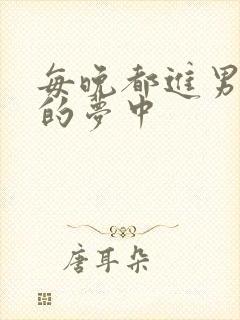 每晚都進男
的夢中
唐耳朵